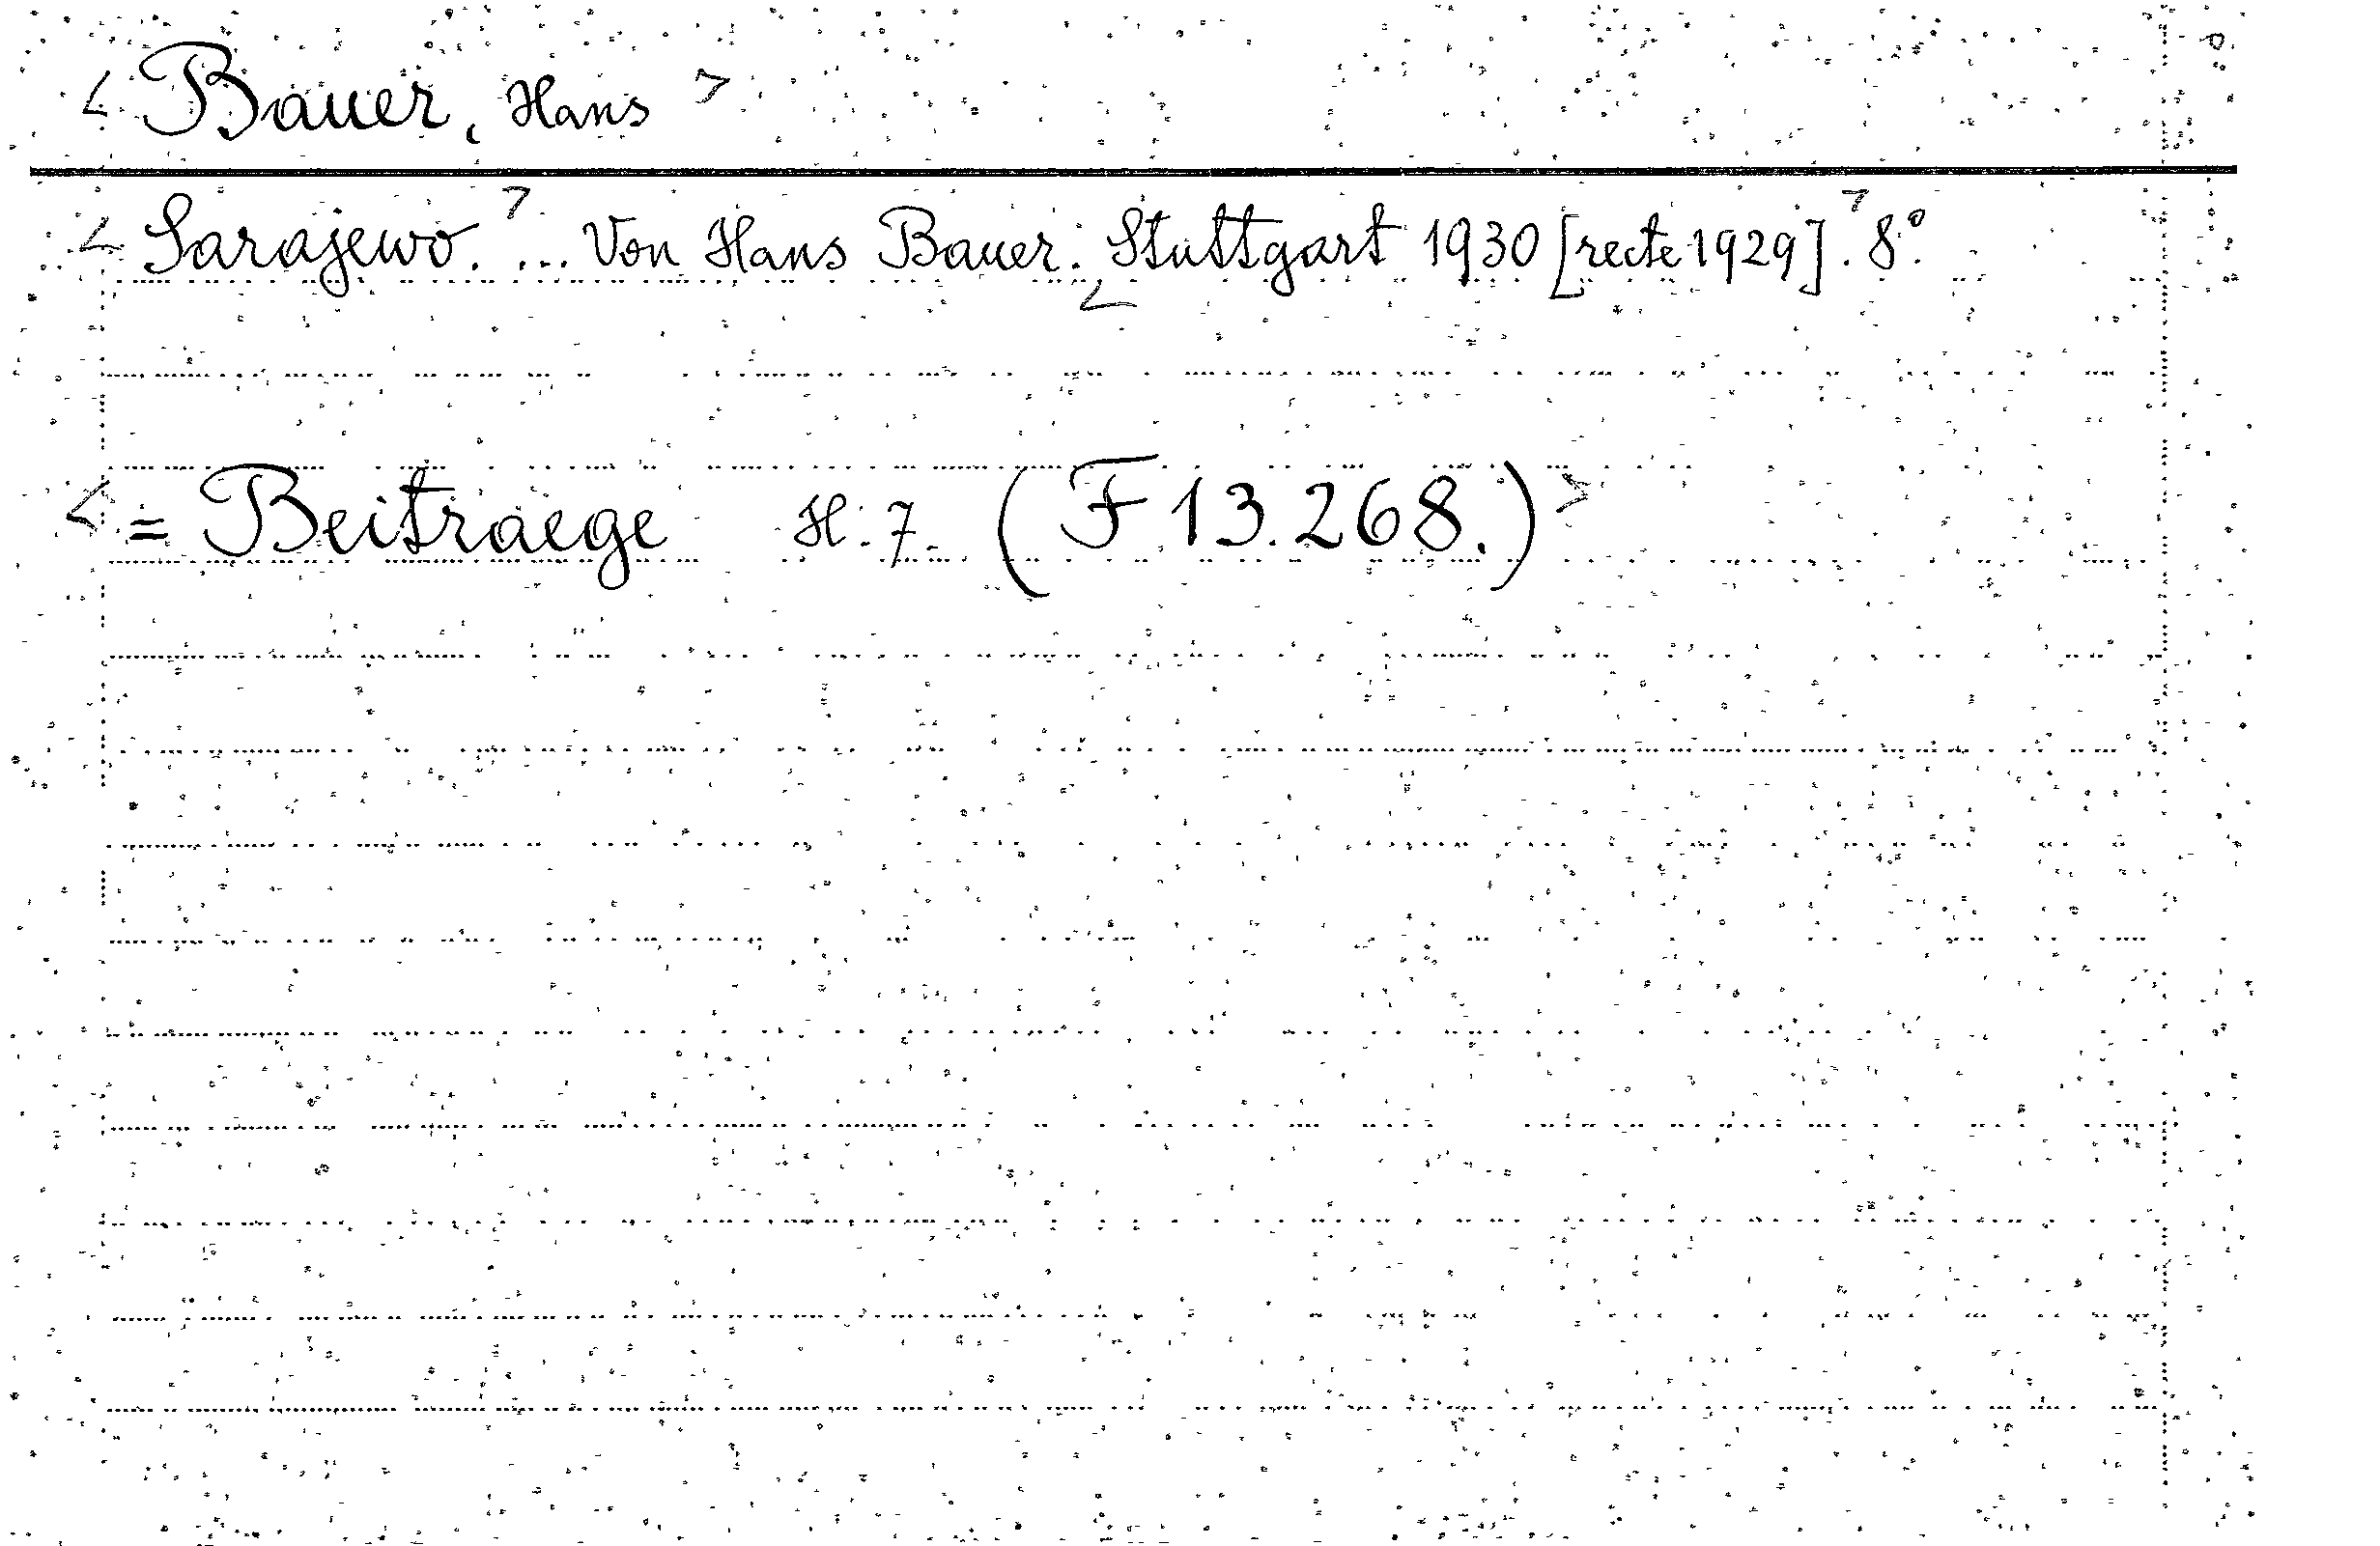 < Bauer, Hans >
< Sarajewo. > ... Von Hans Bauer. < Stuttgart 1930 [recte 1929]. > 8°.
< = Beitraege H. 7. (F 13.268.) >